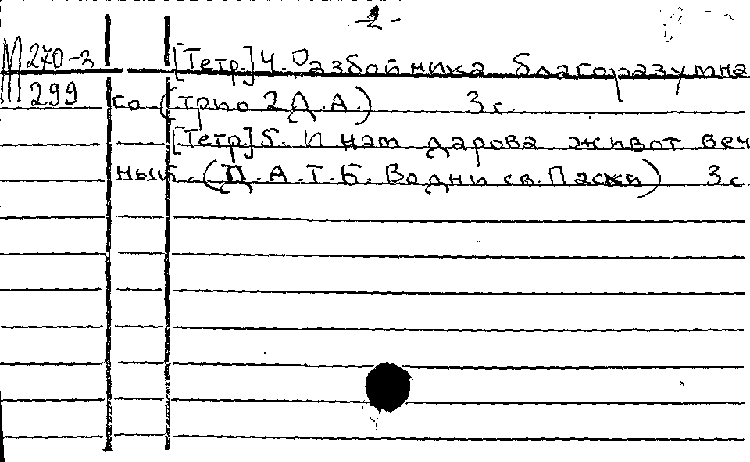 -2-
М 270-3 [Тетр.] 4. Разбойника благоразумна
299 го (трио 2 Д. А.) 3 с
[Тетр] 5. И нам дарова живот веч
ный. (Д. А. Т. Б. Во дни св. Пасхи) 3 с